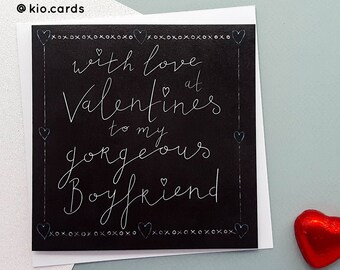 @ kio.cards
with love
at
Valentines
to my
gorgeous
Boyfriend